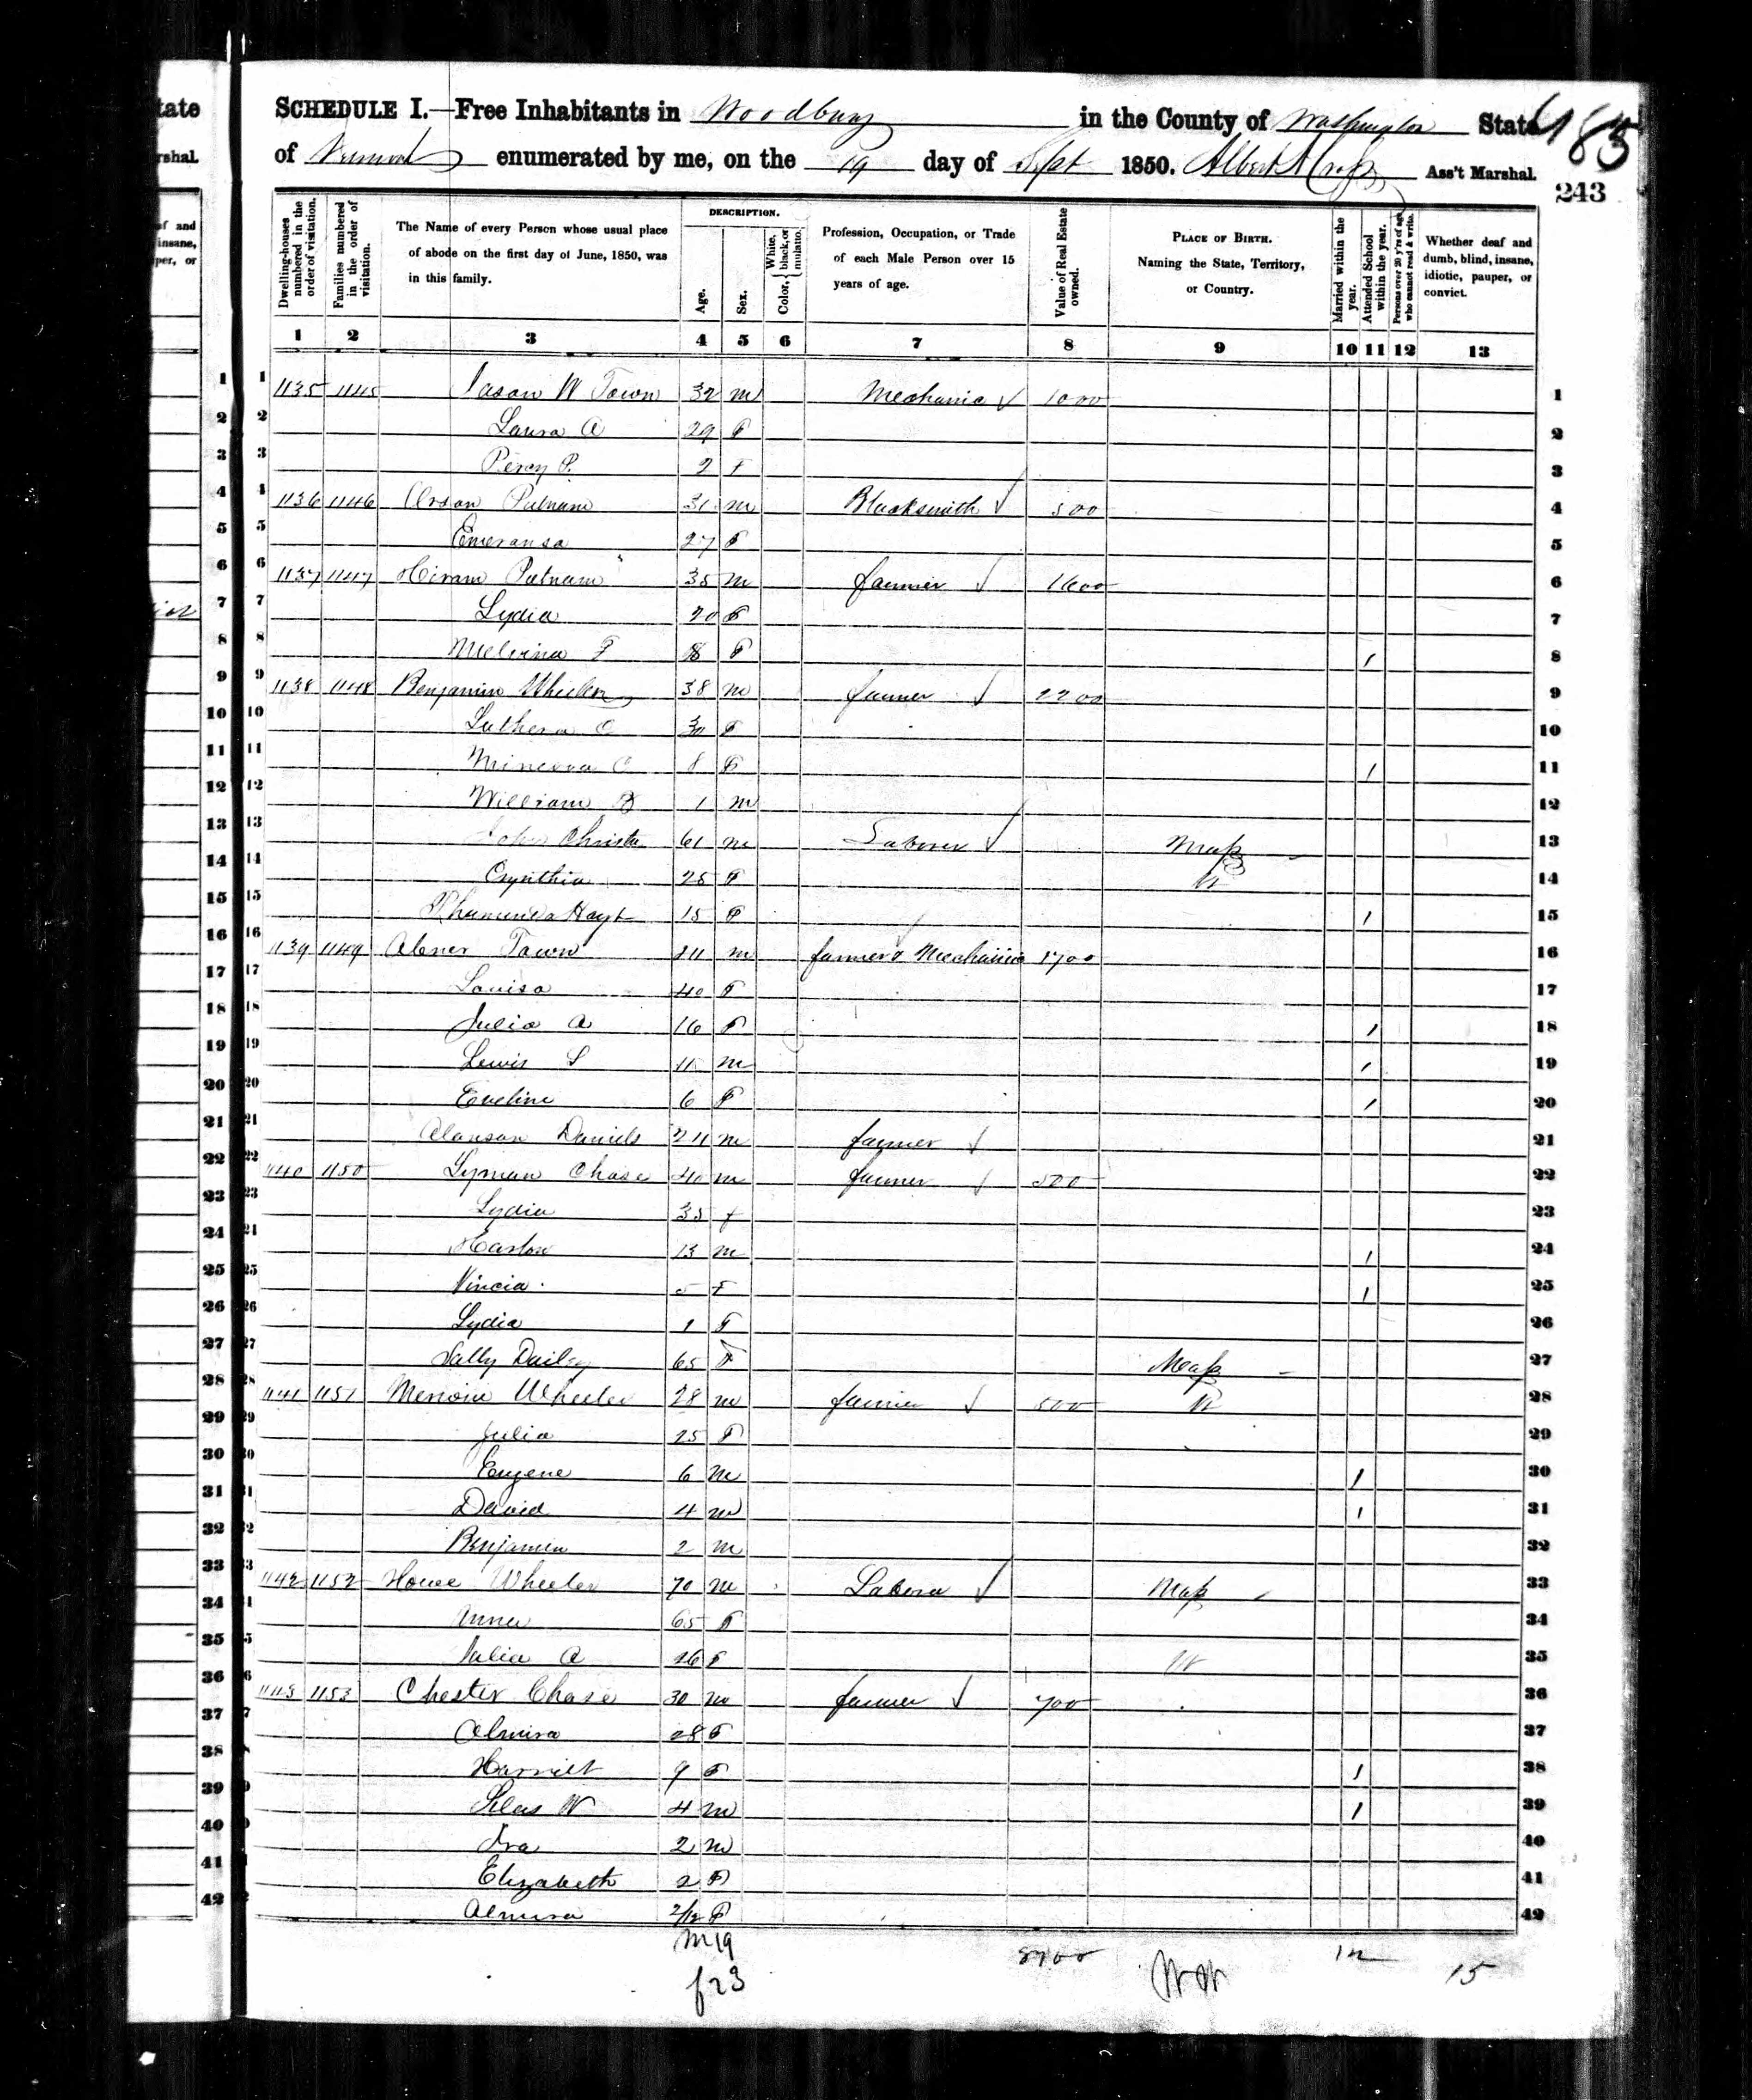 SCHEDULE I.—Free Inhabitants in Woodbury in the County of Washington State 485
of Vermont enumerated by me, on the 19 day of Sept 1850. Albert A Ass't Marshal.
243
Dwelling-houses numbered in the order of visitation.
Families numbered in the order of visitation.
The Name of every Person whose usual place of abode on the first day of June, 1850, was in this family.
DESCRIPTION.
Age.
Sex.
Color, White, black, or mulatto.
Profession, Occupation, or Trade of each Male Person over 15 years of age.
Value of Real Estate owned.
PLACE OF BIRTH. Naming the State, Territory, or Country.
Married within the year.
Attended School within the year.
Persons over 20 y'rs of age who cannot read & write.
Whether deaf and dumb, blind, insane, idiotic, pauper, or convict.
1 2 3 4 5 6 7 8 9 10 11 12 13
1 1135 1145 Jason W Town 32 m Mechanic 1000 1
2 Laura A 29 F 2
3 Percy P. 2 f 3
4 1136 1146 Orson Putnam 31 m Blacksmith 500 4
5 Emeransa 27 F 5
6 1137 1147 Hiram Putnam 35 m farmer 1600 6
7 Lydia 20 F 7
8 F 8 F 1 8
9 1138 1148 Benjamin Wheeler 38 m farmer 2200 9
10 Luthera 30 F 10
11 Minerva C 8 F 1 11
12 William B 1 m 12
13 John Christie 61 m Laborer Mass 13
14 Cynthia 25 F Vt 14
15 Hoyt 15 F 1 15
16 1139 1149 Abner Town 44 m farmer & Mechanic 1700 16
17 Louisa 40 F 17
18 Julia A 16 F 1 18
19 Lewis S 11 m 1 19
20 Eveline 6 F 1 20
21 Alanson Daniels 24 m farmer 21
22 1140 1150 Lyman Chase 40 m farmer 500 22
23 Lydia 35 f 23
24 Harlow 13 m 1 24
25 Vincia 5 F 1 25
26 Lydia 1 F 26
27 Sally Dailey 65 F Mass 27
28 1141 1151 Wheeler 28 m farmer 500 Vt 28
29 Julia 25 F 29
30 Eugene 6 m 1 30
31 David 4 m 1 31
32 Benjamin 2 m 32
33 1142 1152 Wheeler 70 m Labora Mass 33
34 Anna 65 F 34
35 Julia A 26 F Vt 35
36 1143 1153 Chester Chase 30 m farmer 700 36
37 Almira 28 F 37
38 Harriet 9 F 1 38
39 Silas W 4 m 1 39
40 Ira 2 m 40
41 Elizabeth 2 F 41
42 Almira 2/12 F 42
m 19 8700 12 15
f 23